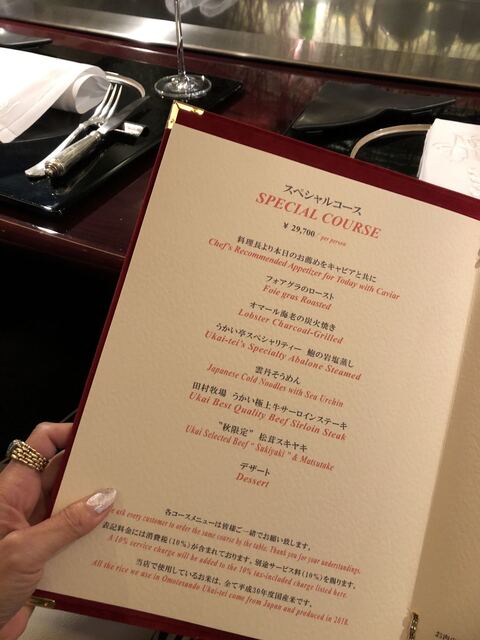 スペシャルコース
SPECIAL COURSE
¥ 29,700 / per person
料理長より本日のお薦めをキャビアと共に
Chef's Recommended Appetizer for Today with Caviar
フォアグラのロースト
Foie gras Roasted
オマール海老の炭火焼き
Lobster Charcoal-Grilled
うかい亭スペシャリティー 鮑の岩塩蒸し
Ukai-tei's Specialty Abalone Steamed
雲丹そうめん
Japanese Cold Noodles with Sea Urchin
田村牧場 うかい極上牛サーロインステーキ
Ukai Best Quality Beef Sirloin Steak
"秋限定" 松茸スキヤキ
Ukai Selected Beef "Sukiyaki" & Matsutake
デザート
Dessert
各コースメニューは皆様ご一緒でお願い致します。
We ask every customer to order the same course by the table. Thank you for your understandings.
表記料金には消費税(10%)が含まれております。別途サービス料(10%)を賜ります。
A 10% service charge will be added to the 10% tax-included charge listed here.
当店で使用しているお米は、全て平成30年度国産米です。
All the rice we use in Omotesando Ukai-tei come from Japan and produced in 2018.